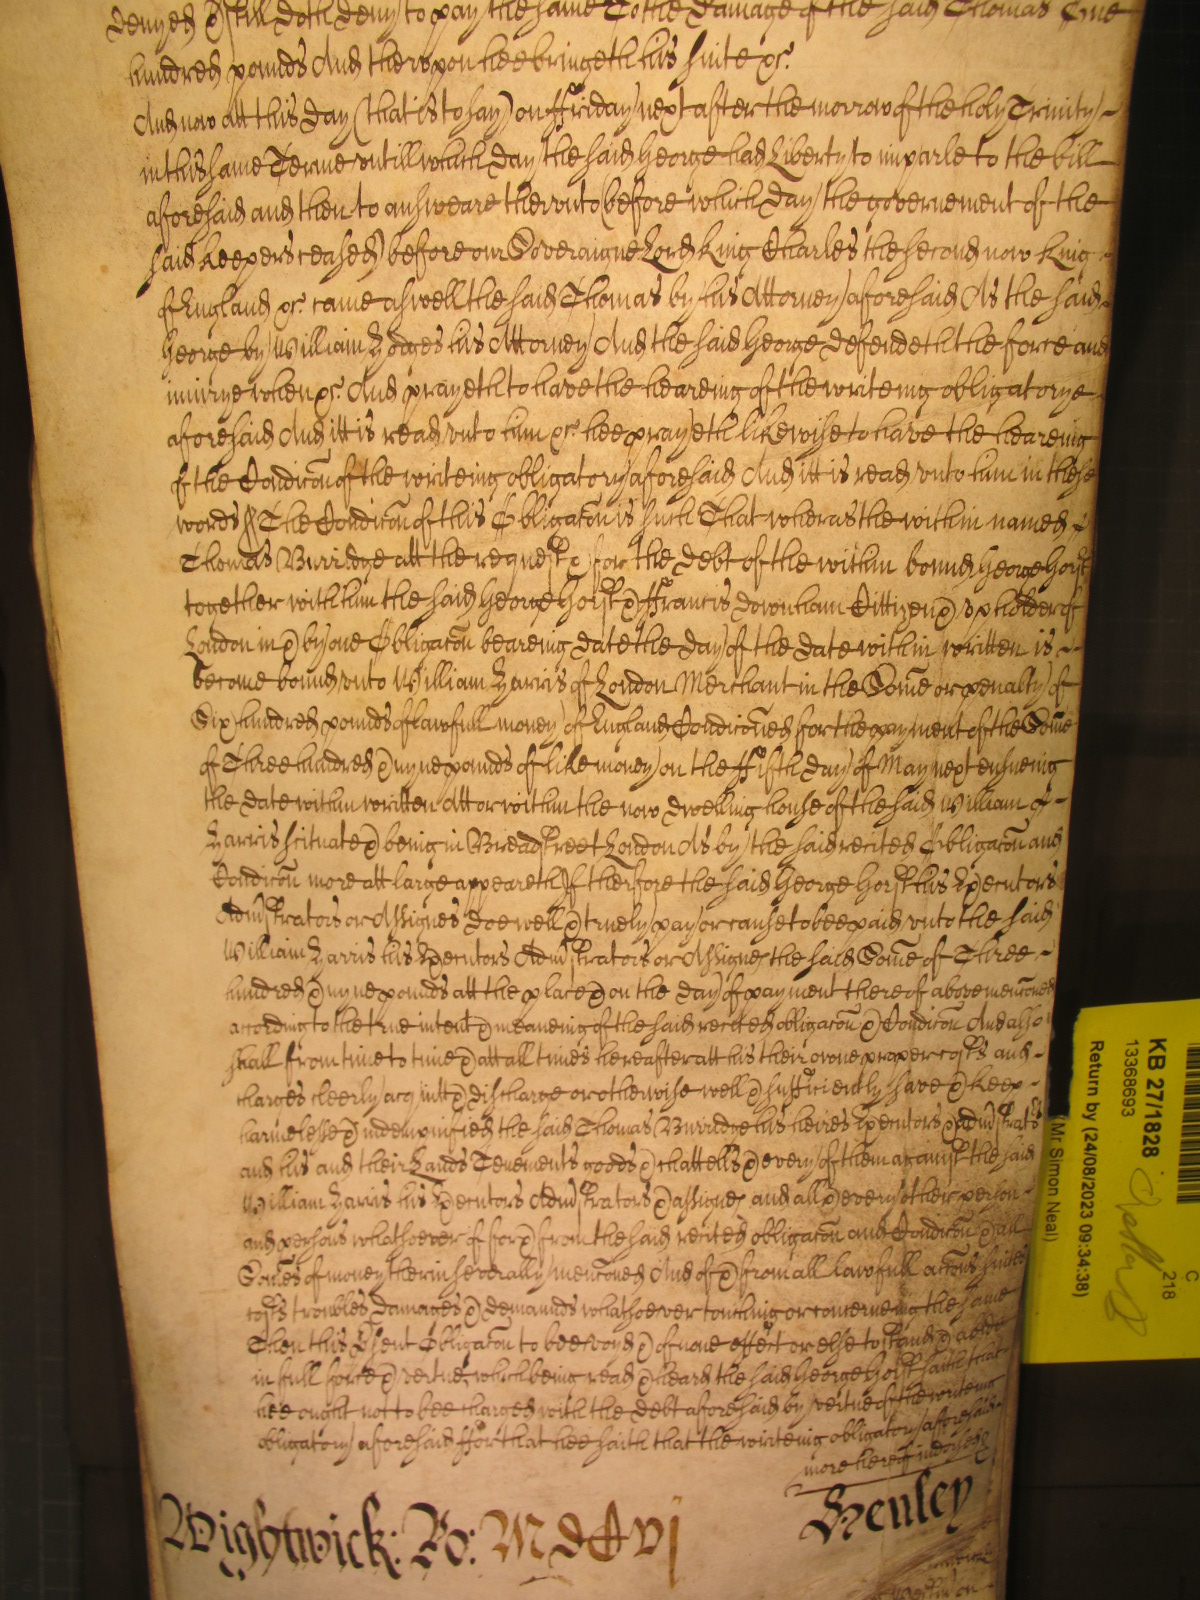 denyed & still doth deny to pay the same To the damage of the said Thomas One
hundred pounds And therupon hee bringeth his suite &c.
And now att this day (that is to say) on ffriday next after the morrow of the holy Trinity
in this same Terme untill which day the said George had Liberty to imparle to the bill
aforesaid and then to answeare therunto (before which day the governement of the
said keepers ceased) before our Soveraigne Lord King Charles the second now King
of England &c. came aswell the said Thomas by his Attorney aforesaid As the said
George by William Hodges his Attorney And the said George defendeth the force and
iniurye when &c. And prayeth to have the heareing of the writeing obligatorye
aforesaid And itt is read unto him &c. hee prayeth likewise to have the heareing
of the Condicõn of the writeing obligatory aforesaid And itt is read unto him in these
words The Condicõn of this Obligacõn is such That wheras the within named
Thomas Burridge att the request & for the debt of the within bound George Horst
together with him the said George Horst & ffrancis downham Cittizen & upholder of
London in & by one Obligacõn beareing date the day of the date within written is
become bound unto William Harris of London Merchant in the Some or penalty of
Six hundred pounds of lawfull money of England Condiconed for the payment of the Some
of Three hundred & nyne pounds of like money on the ffifth day of May next ensueing
the date within written Att or within the now dwelling house of the said William
Harris scituate & being in Breadstreet London As by the said recited Obligacõn and
Condicõn more att large appeareth If therfore the said George Horst his Executors
Admistrators or Assignes doe well & truely pay or cause to bee paid unto the said
William Harris his Executors Admistrators or Assignes the said Some of Three
hundred & nyne pounds att the place & on the day of payment thereof abovemenconed
according to the true intent & meaneing of the said recited obligacõn & Condicõn And also
shall from time to time & att all times hereafter att his their owne proper costs and
charges cleerly acquitt & discharge or otherwise well & sufficiently save & keep
harmelesse & indempnified the said Thomas Burridge his heires Executors & Admistrators
and his and their Lands Tenements goods & chattells & every of them against the said
William Harris his Executors Admistrators & assignes and all & every other person
and persons whatsoever of for & from the said recited obligacõn and Condicõn & all
Somes of money therin severally menconed And of & from all lawfull accons suites
costs troubles damages & demaunds whatsoever touching or concerneing the same
Then this psent Obligacõn to bee voyd & of none effect or else to stand & abide
in full force & vertue, which being read & heard the said George Horst saith that
hee ought not to bee charged with the debt aforesaid by vertue of the writeing
obligatory aforesaid ffor that hee saith that the writeing obligatory aforesaid
more hereof indorsed
Wightwick: Ro: MDCvj
Henley
KB 27/1828
13368693
Return by (24/08/2023 09:34:38)
(Mr Simon Neal)
C
218